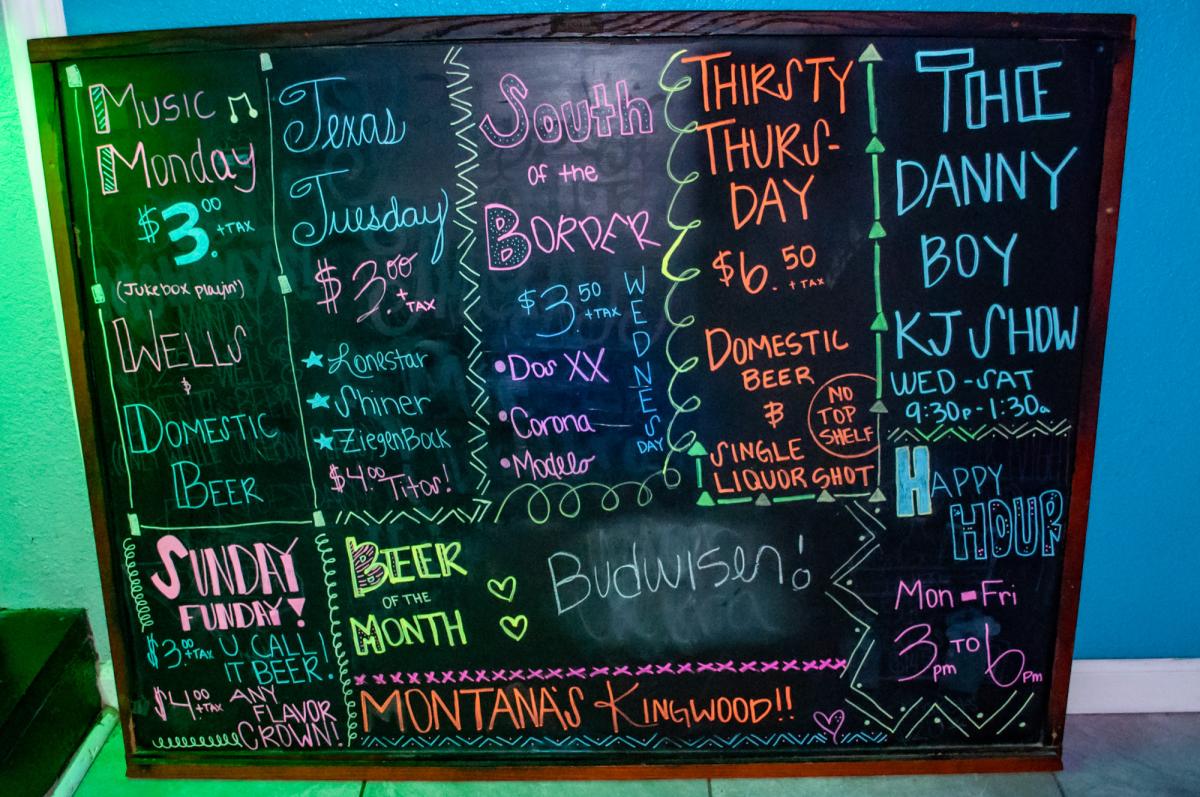 Music
Monday
$3.00 +TAX
(Jukebox playin')
WELLS
&
DOMESTIC
BEER
Texas
Tuesday
$3.00 + TAX
Lonestar
Shiner
ZiegenBock
$4.00 Titos!
South
of the
BORDER
WEDNESDAY
$3.50 +TAX
Dos XX
Corona
Modelo
THIRSTY
THURS-
DAY
$6.50 +TAX
DOMESTIC
BEER
&
SINGLE
LIQUOR SHOT
NO
TOP
SHELF
THE
DANNY
BOY
KJ SHOW
WED-SAT
9:30p-1:30a
HAPPY
HOUR
Mon-Fri
3pm TO 6pm
SUNDAY
FUNDAY!
$3.00 +TAX U CALL!
IT BEER!
$4.00 +TAX ANY
FLAVOR
CROWN!
BEER
OF THE
MONTH
Budwiser!
MONTANA'S KINGWOOD!!